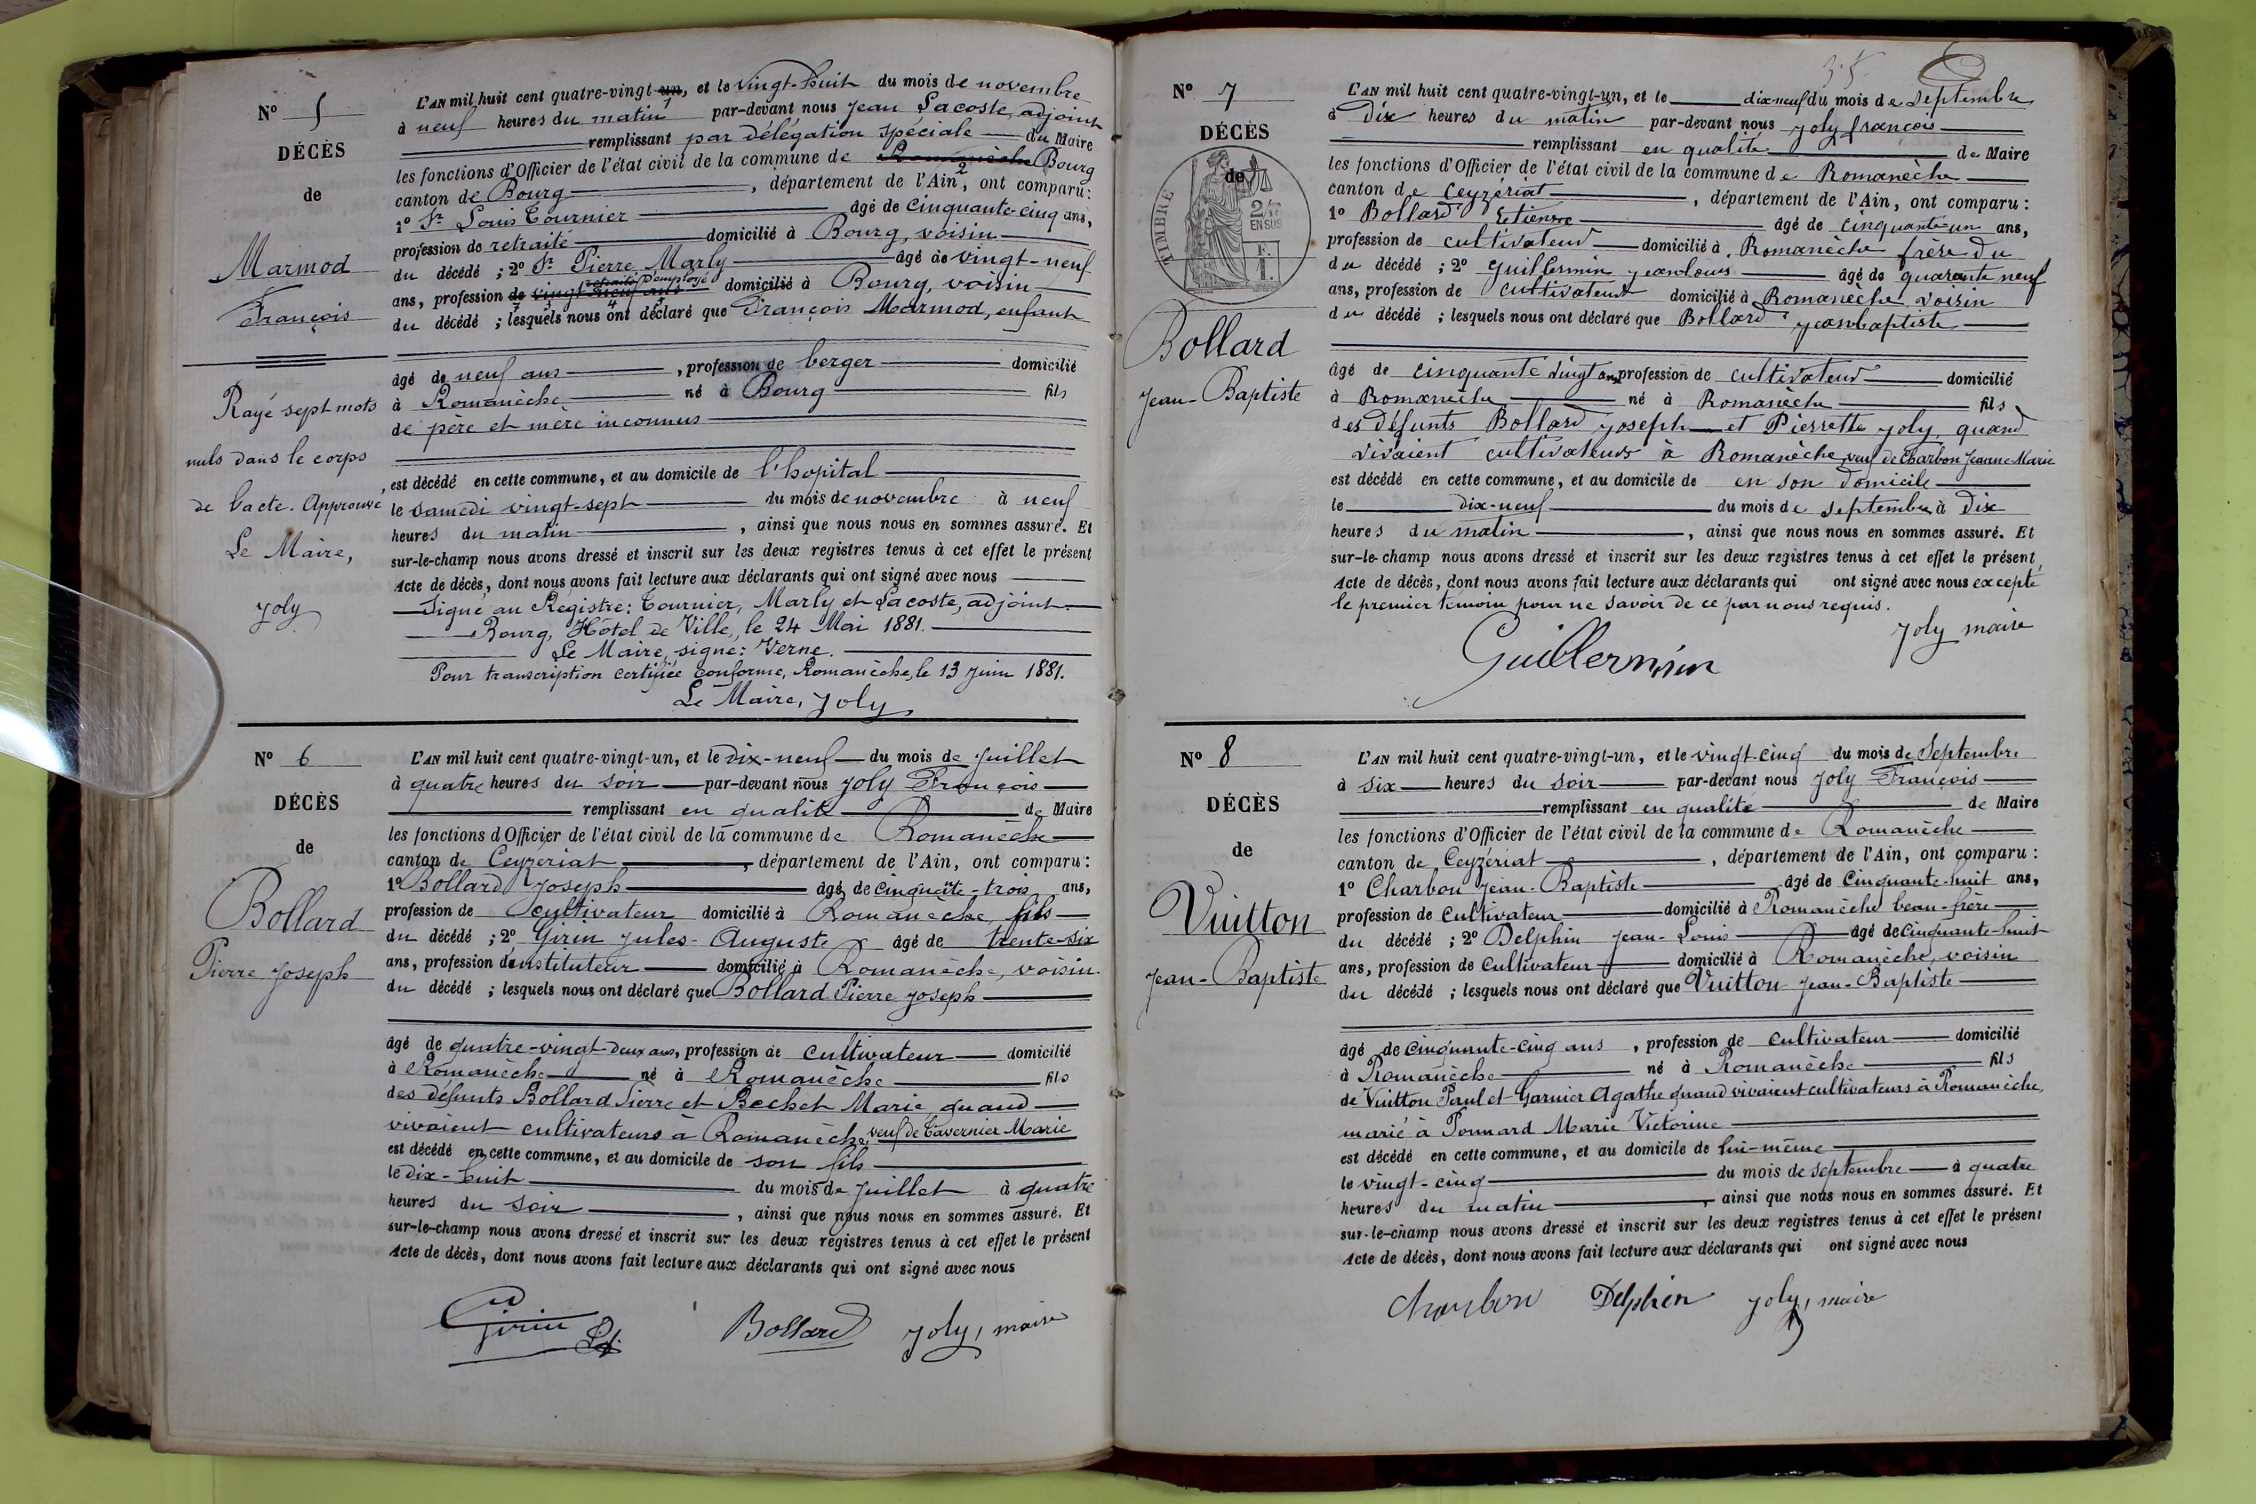 N° 5
DÉCÈS
de
Marmod
François
Rayé sept mots
nuls dans le corps
de l'acte. Approuvé
Le Maire,
Joly
L'AN mil huit cent quatre-vingt-un, et le vingt-huit du mois de novembre
à neuf heures du matin par-devant nous Jean Lacoste, adjoint
remplissant par délégation spéciale du Maire
les fonctions d'Officier de l'état civil de la commune de Romanèche Bourg
canton de Bourg, département de l'Ain, ont comparu :
1° Sr Louis Tournier âgé de cinquante-cinq ans,
profession de retraité domicilié à Bourg, voisin
du décédé ; 2° Sr Pierre Marly âgé de vingt-neuf
ans, profession de vingt neuf ans d'employé domicilié à Bourg, voisin
du décédé ; lesquels nous ont déclaré que François Marmod, enfant
âgé de neuf ans, profession de berger domicilié
à Romanèche né à Bourg fils
de père et mère inconnus
est décédé en cette commune, et au domicile de l'hopital
le samedi vingt-sept du mois de novembre à neuf
heures du matin, ainsi que nous nous en sommes assuré. Et
sur-le-champ nous avons dressé et inscrit sur les deux registres tenus à cet effet le présent
Acte de décès, dont nous avons fait lecture aux déclarants qui ont signé avec nous
Signé au Régistre: Tournier, Marly et Lacoste, adjoint.
Bourg, Hôtel de Ville, le 24 Mai 1881.
Le Maire, signé: Verne.
Pour transcription certifiée conforme, Romanèche, le 13 Juin 1881.
Le Maire, Joly
N° 6
DÉCÈS
de
Bollard
Pierre Joseph
L'AN mil huit cent quatre-vingt-un, et le dix-neuf du mois de Juillet
à quatre heures du soir par-devant nous Joly François
remplissant en qualité de Maire
les fonctions d'Officier de l'état civil de la commune de Romanèche
canton de Ceyzeriat, département de l'Ain, ont comparu :
1° Bollard Joseph âgé de cinquante-trois ans,
profession de cultivateur domicilié à Romanèche, fils
du décédé ; 2° Girin Jules-Auguste âgé de trente-six
ans, profession d'instituteur domicilié à Romanèche, voisin
du décédé ; lesquels nous ont déclaré que Bollard Pierre Joseph
âgé de quatre-vingt-deux ans, profession de cultivateur domicilié
à Romanèche né à Romanèche fils
des défunts Bollard Pierre et Bechet Marie quand
vivaient cultivateurs à Romanèche, veuf de Tavernier Marie
est décédé en cette commune, et au domicile de son fils
le dix-huit du mois de Juillet à quatre
heures du soir, ainsi que nous nous en sommes assuré. Et
sur-le-champ nous avons dressé et inscrit sur les deux registres tenus à cet effet le présent
Acte de décès, dont nous avons fait lecture aux déclarants qui ont signé avec nous
Girin Bollard Joly, maire
N° 7
DÉCÈS
de
TIMBRE
2/10
EN SUS
F.
1.
Bollard
Jean-Baptiste
L'AN mil huit cent quatre-vingt-un, et le dix neuf du mois de Septembre
à Dix heures du matin par-devant nous Joly françois
remplissant en qualité de Maire
les fonctions d'Officier de l'état civil de la commune de Romanèche
canton de Ceyzériat, département de l'Ain, ont comparu :
1° Bollard Etienne âgé de cinquante un ans,
profession de cultivateur domicilié à Romanèche frère du
du décédé ; 2° Guillermin Jeanlouis âgé de quarante neuf
ans, profession de cultivateur domicilié à Romanèche voisin
du décédé ; lesquels nous ont déclaré que Bollard Jeanbaptiste
âgé de cinquante cinq ans, profession de cultivateur domicilié
à Romanèche né à Romanèche fils
des défunts Bollard Joseph et Pierrette Joly, quand
vivaient cultivateurs à Romanèche, veuf de Charbon Jeanne Marie
est décédé en cette commune, et au domicile de en son domicile
le dix-neuf du mois de septembre à Dix
heures du matin, ainsi que nous nous en sommes assuré. Et
sur-le-champ nous avons dressé et inscrit sur les deux registres tenus à cet effet le présent
Acte de décès, dont nous avons fait lecture aux déclarants qui ont signé avec nous excepté
le premier témoin pour ne savoir de ce par nous requis.
Joly maire
Guillermin
N° 8
DÉCÈS
de
Vuitton
Jean-Baptiste
L'AN mil huit cent quatre-vingt-un, et le vingt-cinq du mois de Septembre
à six heures du soir par-devant nous Joly François
remplissant en qualité de Maire
les fonctions d'Officier de l'état civil de la commune de Romanèche
canton de Ceyzériat, département de l'Ain, ont comparu :
1° Charbon Jean-Baptiste âgé de cinquante-huit ans,
profession de cultivateur domicilié à Romanèche beau-frère
du décédé ; 2° Delphin Jean-Louis âgé de cinquante-huit
ans, profession de cultivateur domicilié à Romanèche, voisin
du décédé ; lesquels nous ont déclaré que Vuitton Jean-Baptiste
âgé de cinquante-cinq ans, profession de cultivateur domicilié
à Romanèche né à Romanèche fils
de Vuitton Paul et Garnier Agathe quand vivaient cultivateurs à Romanèche,
marié à Ponnard Marie Victorine
est décédé en cette commune, et au domicile de lui-même
le vingt-cinq du mois de septembre à quatre
heures du matin, ainsi que nous nous en sommes assuré. Et
sur-le-champ nous avons dressé et inscrit sur les deux registres tenus à cet effet le présent
Acte de décès, dont nous avons fait lecture aux déclarants qui ont signé avec nous
Charbon Delphin Joly, maire